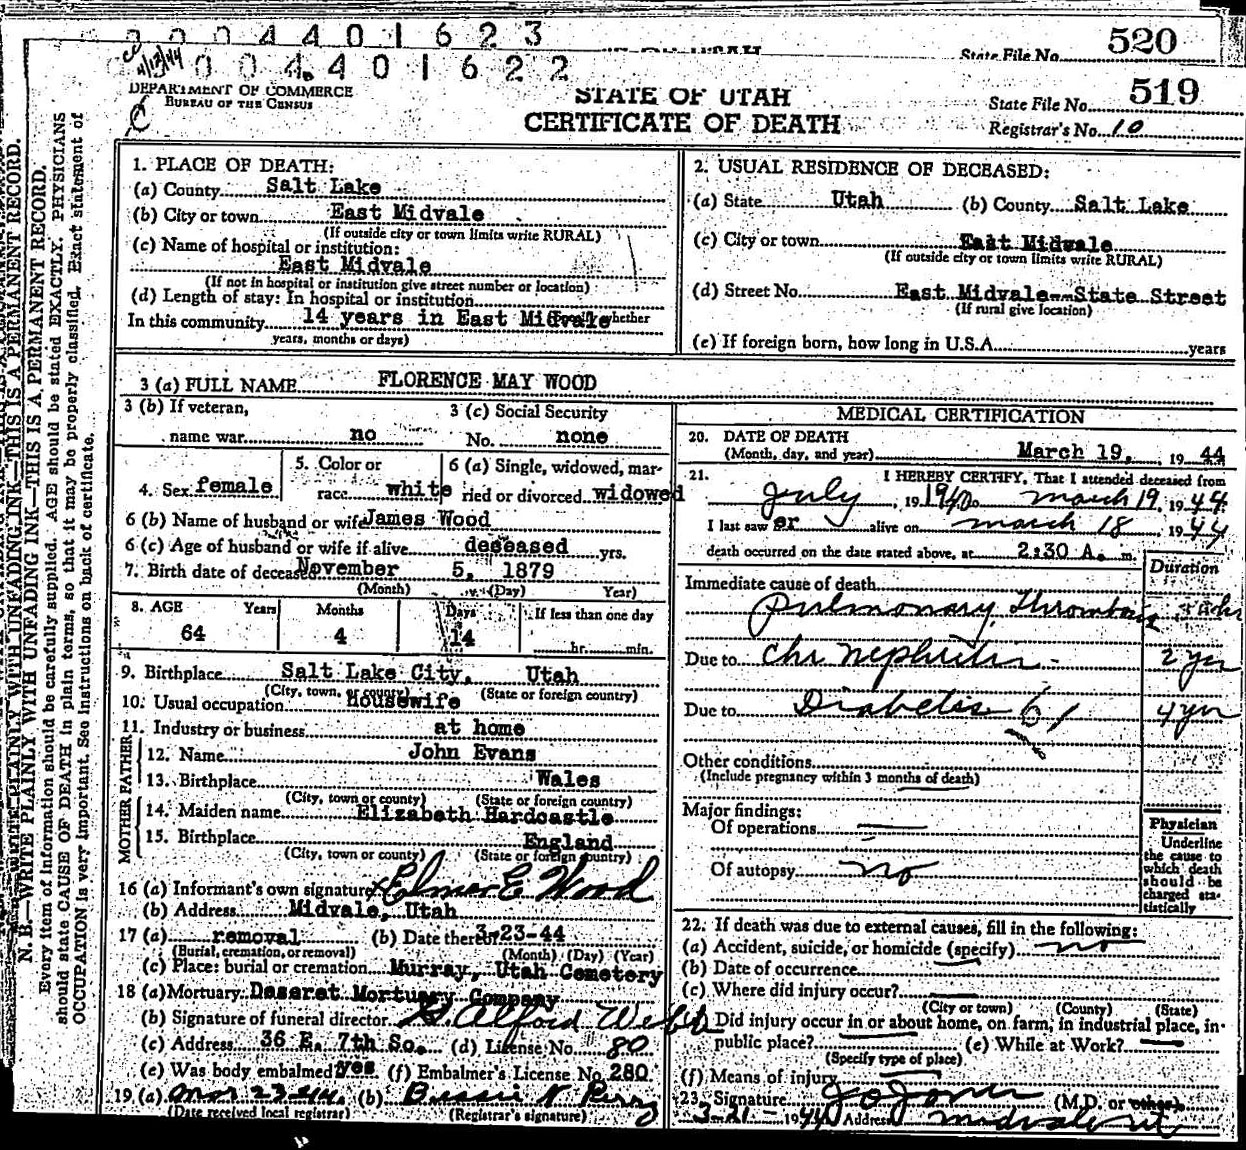 0 0 0 4 4 0 1 6 2 3
State File No. 520
4/13/44 0 0 4 4 0 1 6 2 2
DEPARTMENT OF COMMERCE
BUREAU OF THE CENSUS
C
STATE OF UTAH
CERTIFICATE OF DEATH
State File No. 519
Registrar's No. 10
N. B.—WRITE PLAINLY WITH UNFADING INK—THIS IS A PERMANENT RECORD.
Every item of information should be carefully supplied. AGE should be stated EXACTLY. PHYSICIANS
should state CAUSE OF DEATH in plain terms, so that it may be properly classified. Exact statement of
OCCUPATION is very important. See instructions on back of certificate.
1. PLACE OF DEATH:
(a) County Salt Lake
(b) City or town East Midvale
(If outside city or town limits write RURAL)
(c) Name of hospital or institution:
East Midvale
(If not in hospital or institution give street number or location)
(d) Length of stay: In hospital or institution
In this community 14 years in East Midvale whether
years, months or days)
2. USUAL RESIDENCE OF DECEASED:
(a) State Utah (b) County Salt Lake
(c) City or town East Midvale
(If outside city or town limits write RURAL)
(d) Street No. East Midvale--State Street
(If rural give location)
(e) If foreign born, how long in U.S.A. years
3 (a) FULL NAME FLORENCE MAY WOOD
3 (b) If veteran, 3 (c) Social Security
name war no No. none
4. Sex female 5. Color or race white 6 (a) Single, widowed, married or divorced widowed
6 (b) Name of husband or wife James Wood
6 (c) Age of husband or wife if alive deseased yrs.
7. Birth date of deceased November 5, 1879
(Month) (Day) Year)
8. AGE Years Months Days If less than one day
64 4 14 hr. min.
9. Birthplace Salt Lake City, Utah
(City, town, or county) (State or foreign country)
10. Usual occupation Housewife
11. Industry or business at home
FATHER
12. Name John Evans
13. Birthplace Wales
(City, town or county) (State or foreign country)
MOTHER
14. Maiden name Elizabeth Hardcastle
15. Birthplace England
(City, town or county) (State or foreign country)
16 (a) Informant's own signature Elmer E Wood
(b) Address Midvale, Utah
17 (a) removal (b) Date thereof 3-23-44
(Burial, cremation, or removal) (Month) (Day) (Year)
(c) Place: burial or cremation Murray, Utah Cemetery
18 (a) Mortuary Deseret Mortuary Company
(b) Signature of funeral director Alford Webb
(c) Address 36 E. 7th So. (d) License No. 80
(e) Was body embalmed? yes (f) Embalmer's License No. 280
19 (a) Mar 23-44 (b) Bessie N
(Date received local registrar) (Registrar's signature)
MEDICAL CERTIFICATION
20. DATE OF DEATH
(Month, day, and year) March 19, 19 44
21. I HEREBY CERTIFY, That I attended deceased from
July, 19 1940 to march 19, 19 44
I last saw er alive on march 18 19 44
death occurred on the date stated above, at 2:30 A. m.
Duration
Immediate cause of death
Pulmonary Thrombosis
Due to Chr Nephritis 2 yrs
Due to Diabetis 61 4 yrs
Other conditions
(Include pregnancy within 3 months of death)
Major findings:
Of operations
Of autopsy no
Physician
Underline
the cause to
which death
should be
charged sta-
tistically
22. If death was due to external causes, fill in the following:
(a) Accident, suicide, or homicide (specify) no
(b) Date of occurrence
(c) Where did injury occur?
(City or town) (County) (State)
Did injury occur in or about home, on farm, in industrial place, in
public place? (e) While at Work?
(Specify type of place)
(f) Means of injury
23. Signature J O Jones (M.D. or other)
3-21- 1944 Address midvale ut